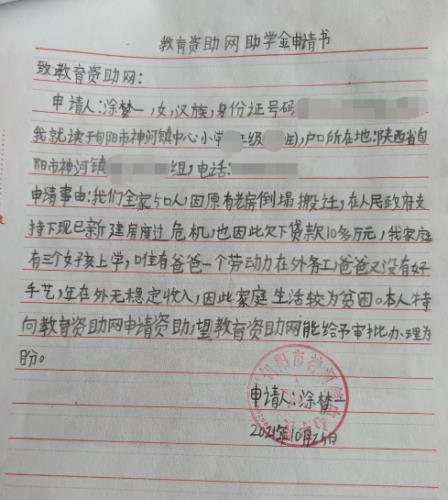 教育资助网助学金申请书
致教育资助网:
申请人:涂梦一,女,汉族,身份证号码
我就读于旬阳市神河镇中心小学 年级 ),户口所在地:陕西省旬
阳市神河镇 组,电话:
申请事由:我们全家5口人,因原有老房倒塌搬迁,在人民政府支
持下现已新建房度过危机,也因此欠下贷款10多万元,我家庭
有三个女孩上学,唯有爸爸一个劳动力在外务工,爸爸又没有好
手艺,年在外无稳定收入,因此家庭生活较为贫困。本人特
向教育资助网申请资助,望教育资助网能给予审批办理为
盼。
申请人:涂梦一
2021年10月25日